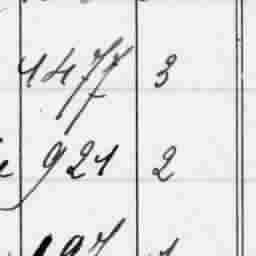 1477 3
921 2